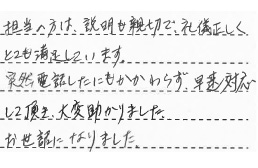 担当の方は、説明も親切で、礼儀正しく
とても満足しています。
突然電話したにもかかわらず、早急対応
して頂き、大変助かりました。
お世話になりました。